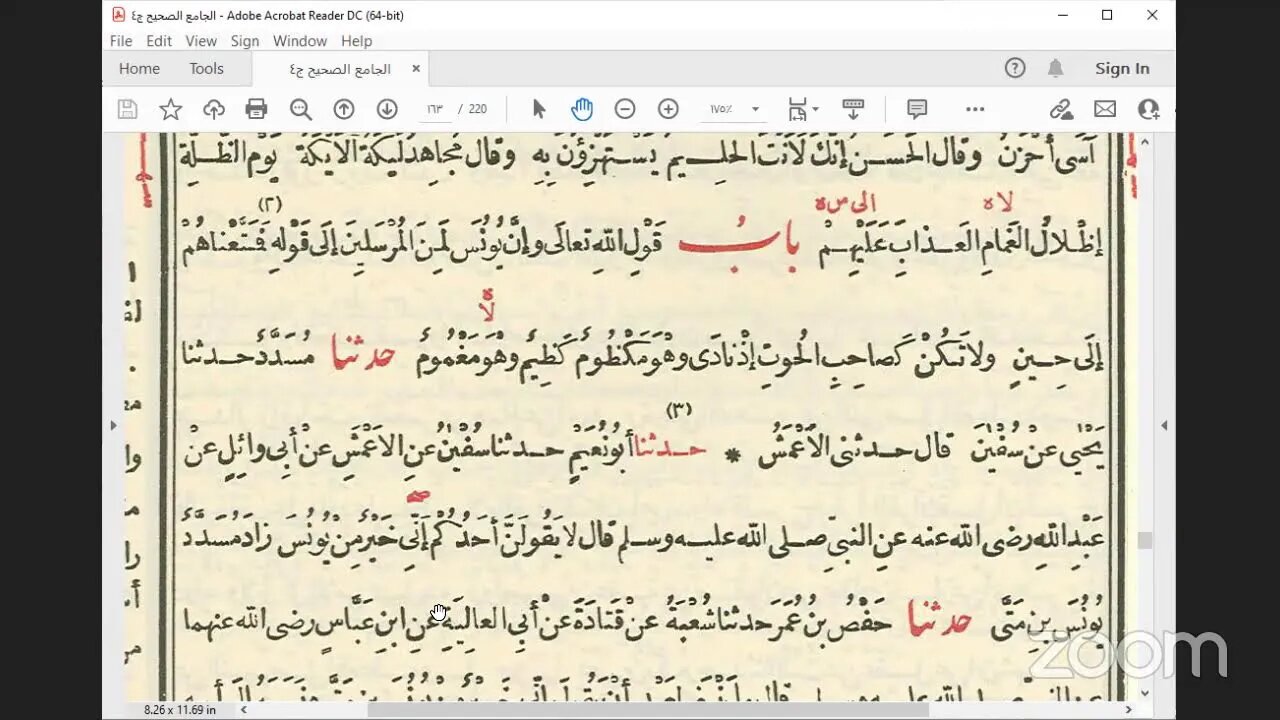 الجامع الصحيح ج٤ - Adobe Acrobat Reader DC (64-bit)
File Edit View Sign Window Help
Home Tools الجامع الصحيح ج٤ × Sign In
١٦٣ / 220 ١٧٥٪
آسَى أَحْزَنُ وقال الحَسَنُ إِنَّكَ لَأَنْتَ الحَلِيمُ يَسْتَهْزِؤُنَ بِهِ وقال مُجَاهِدٌ لَيْكَةُ الأَيْكَةُ يَوْمِ الظُّلَّةِ
لا ه الى س ه (٢)
إِظْلالُ الغَمامِ العَذابَ عَلَيْهِمْ بابُ قَوْلِ اللهِ تعالى وإنَّ يُونُسَ لَمِنَ المُرْسَلِينَ إلى قَوْلِهِ فَمَتَّعْناهُمْ
لا ه
إلَى حِينٍ ولا تَكُنْ كَصاحِبِ الحُوتِ إذْ نادَى وهْوَ مَكْظُومٌ كَظِيمٌ وهْوَ مَغْمُومٌ حدثنا مُسَدَّدٌ حدثنا
(٣)
يَحْيَى عنْ سُفْيٰنَ قال حدثنى الأَعْمَشُ * حدثنا أبُو نُعَيْمٍ حدثنا سُفْيٰنُ عنِ الأَعْمَشِ عنْ أبِى وائِلٍ عنْ
صح
عَبْدِ اللهِ رضى الله عنه عنِ النبيِّ صلى الله عليه وسلم قال لا يَقُولَنَّ أحَدُكُمْ إنِّى خَيْرٌ مِنْ يُونُسَ زادَ مُسَدَّدٌ
يُونُسَ بنِ مَتَّى حدثنا حَفْصُ بنُ عُمَرَ حدثنا شُعْبَةُ عنْ قَتَادَةَ عنْ أبِى العالِيَةِ عنِ ابنِ عَبَّاسٍ رضى الله عنهما
zoom
8.26 x 11.69 in